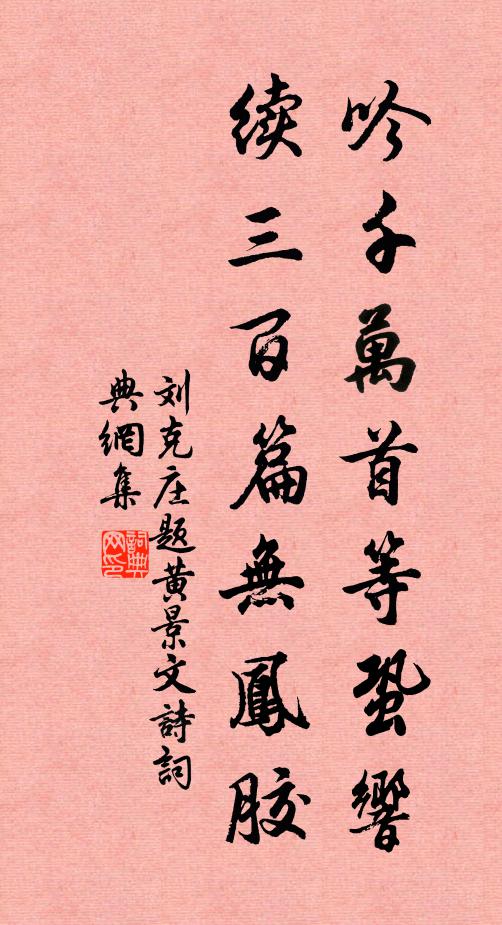 吟千萬首等蛩響
续三百篇無鳳膠
刘克庄题黄景文詩詞
典網集
詞典
网印